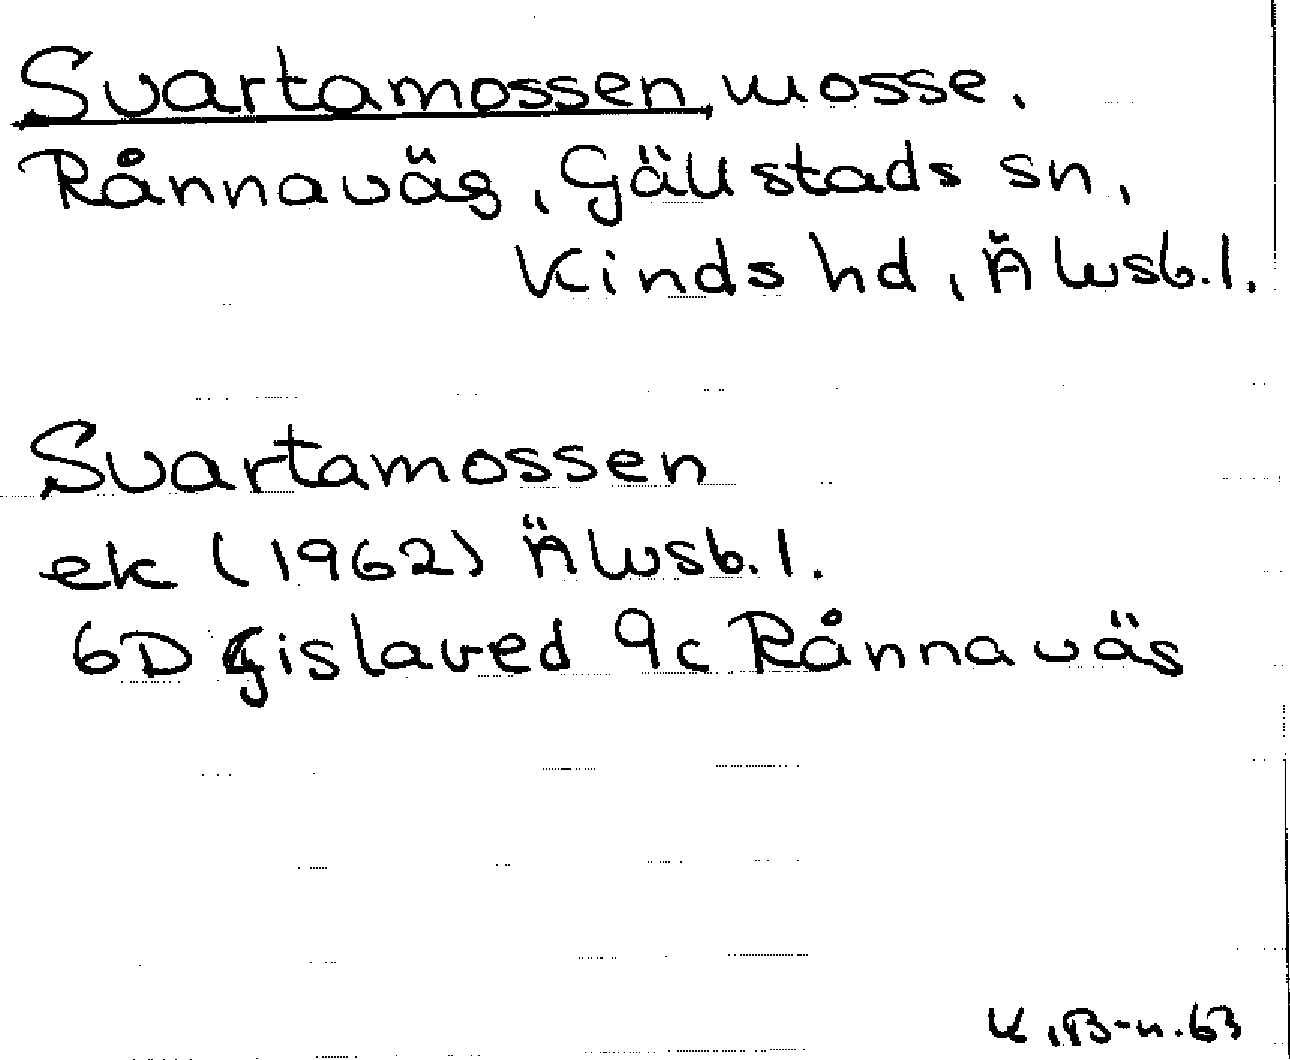 Svartamossen, mosse.
Rånnaväg, Gällstads sn,
Kinds hd, Älvsb.l.
Svartamossen
ek (1962) Älvsb.l.
6D Gislaved 9c Rånnaväs
K.B-n.63